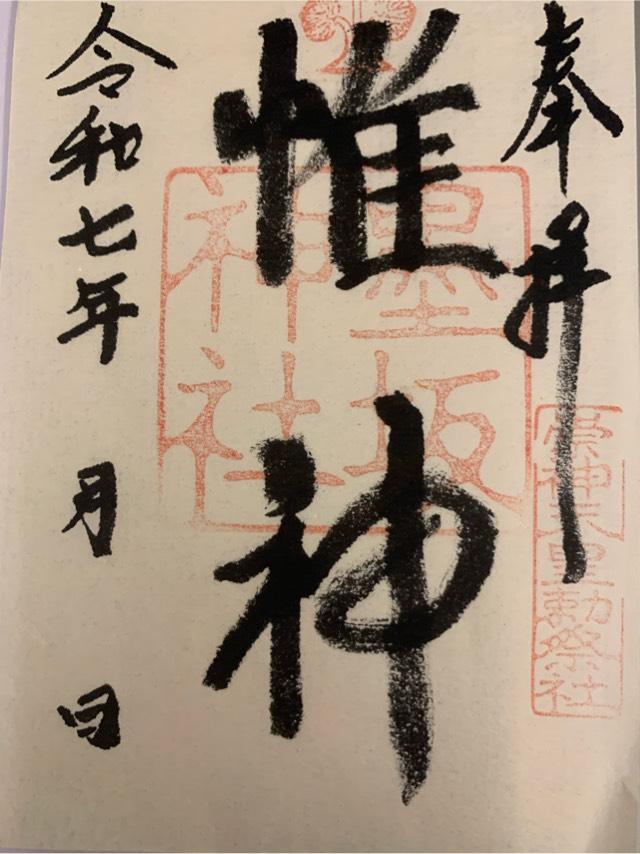 奉拝
崇神天皇勅祭社
惟神
墨坂
神社
令和七年 月 日